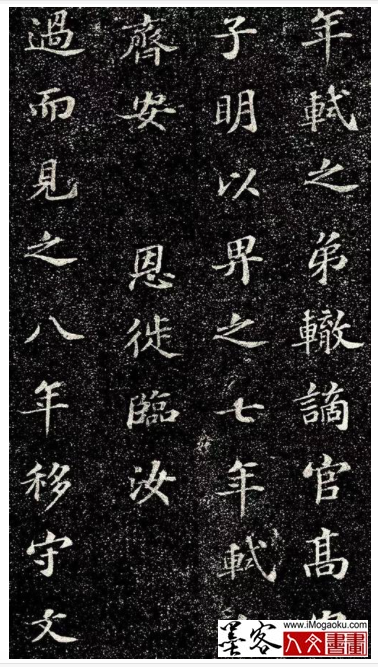 年軾之弟轍謫官高
子明以畀之七年軾
齊安 恩徙臨汝
過而見之八年移守文
www.iMogaoku.com
墨客
人文書畫